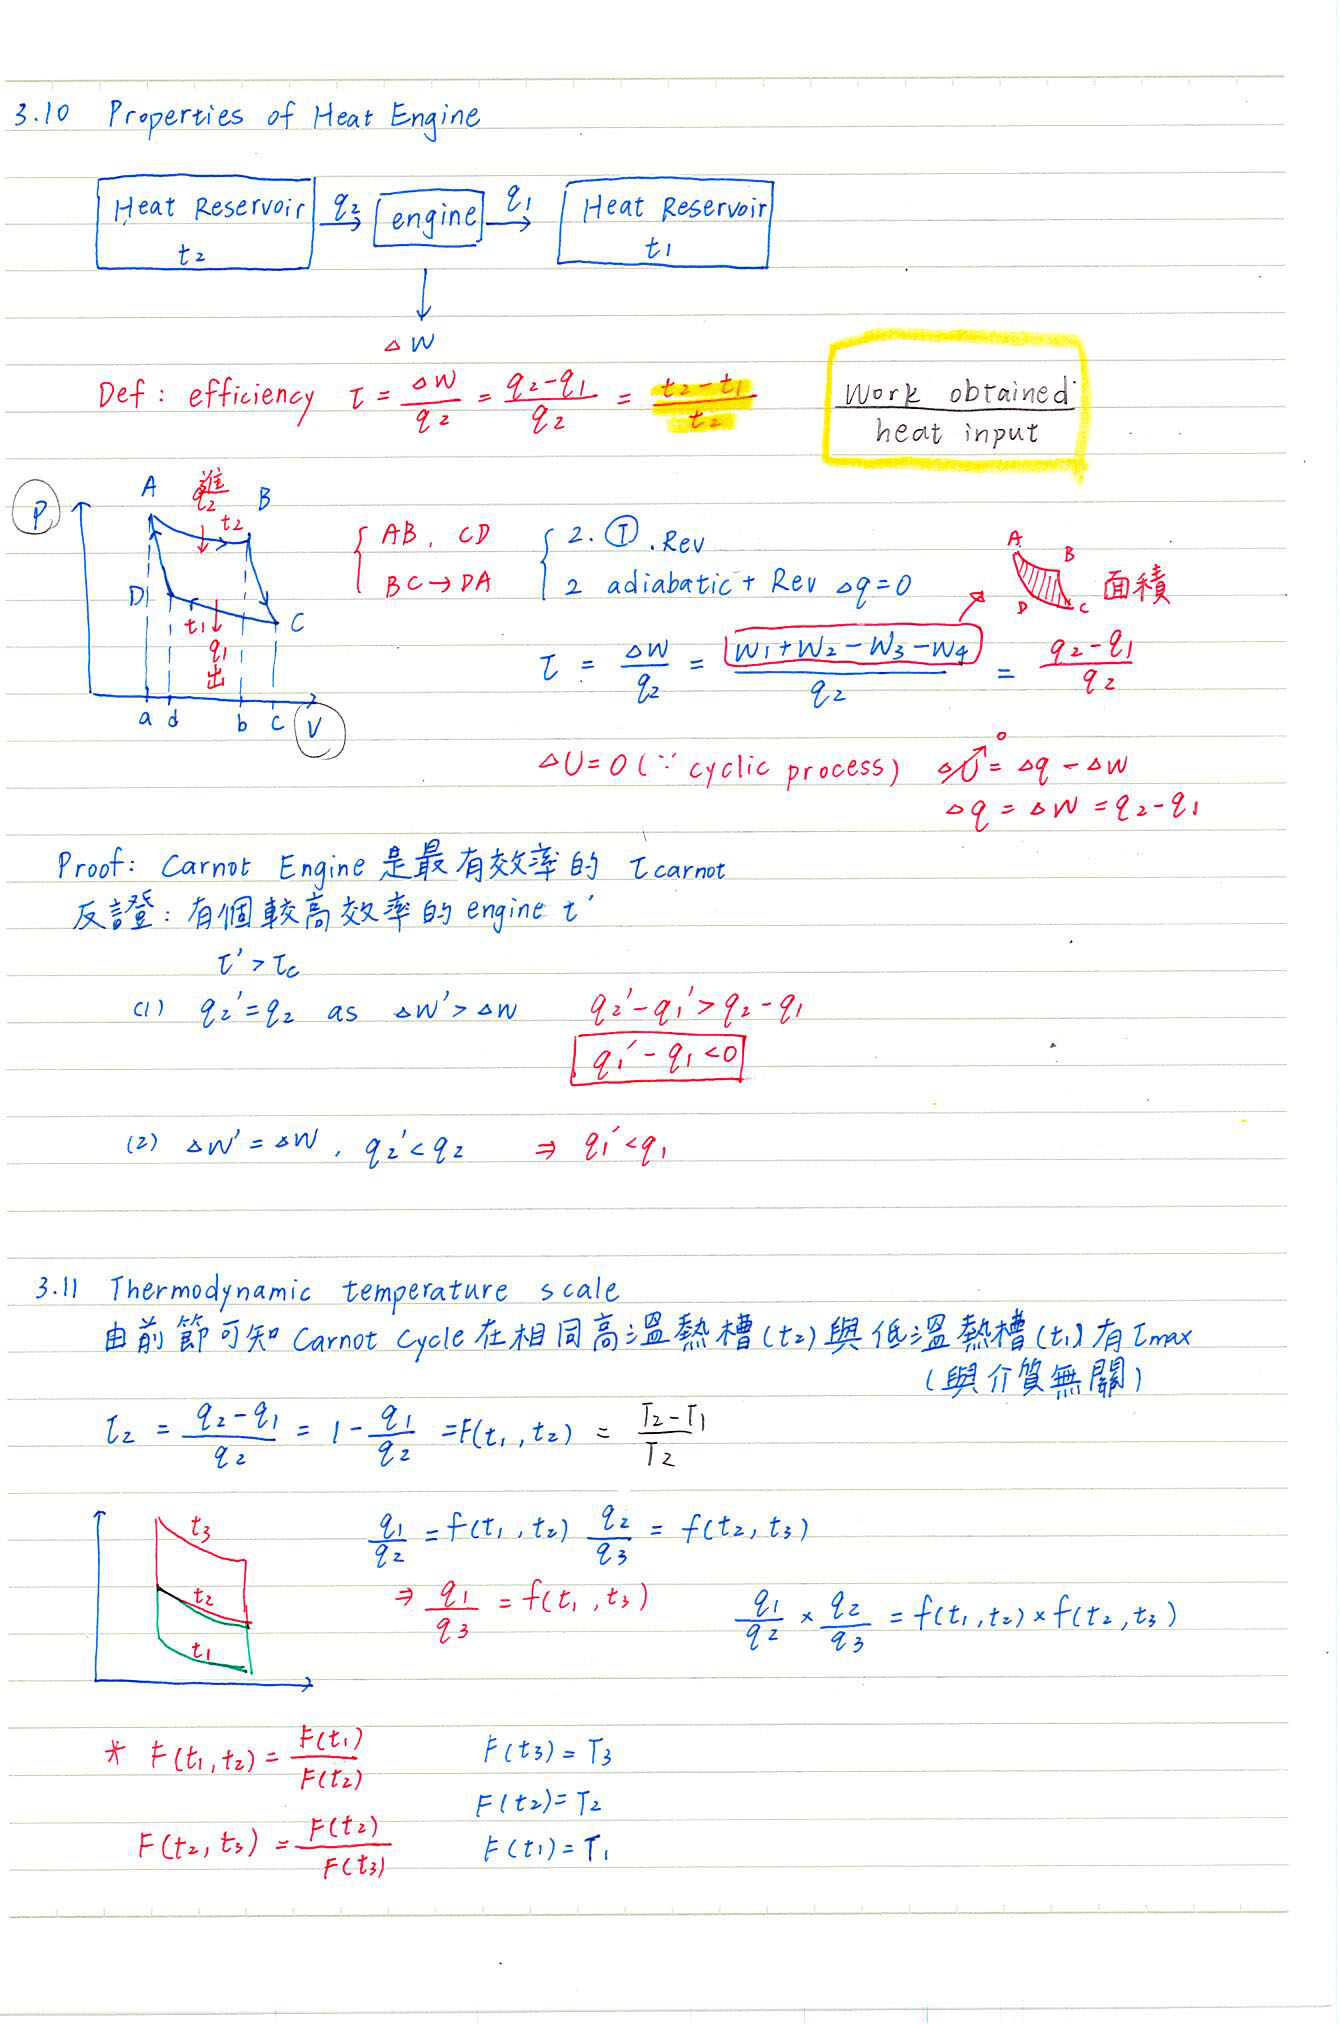 3.10 Properties of Heat Engine
Heat Reservoir t₂ q₂ → engine q₁ → Heat Reservoir t₁
↓
△W
Def : efficiency τ = △W/q₂ = q₂-q₁/q₂ = t₂-t₁/t₂
Work obtained / heat input
P A 進 q₂ t₂ B
D t₁ q₁ 出 C
a d b c V
{ AB, CD { 2. Ⓣ. Rev
BC → DA 2 adiabatic + Rev △q=0
A B C D 面積
τ = △W/q₂ = W₁+W₂-W₃-W₄/q₂ = q₂-q₁/q₂
△U=0 (∵ cyclic process) △U↗⁰ = △q - △W
△q = △W = q₂-q₁
Proof: Carnot Engine 是最有效率的 τcarnot
反證: 有個較高效率的 engine t'
τ' > τc
(1) q₂'=q₂ as △W' > △W q₂'-q₁' > q₂-q₁
q₁'-q₁<0
(2) △W' = △W , q₂' < q₂ ⇒ q₁' < q₁
3.11 Thermodynamic temperature scale
由前節可知 Carnot Cycle 在相同高溫熱槽(t₂)與低溫熱槽(t₁)有τmax
(與介質無關)
τ₂ = q₂-q₁/q₂ = 1 - q₁/q₂ = F(t₁, t₂) = T₂-T₁/T₂
t₃
t₂
t₁
q₁/q₂ = f(t₁, t₂) q₂/q₃ = f(t₂, t₃)
⇒ q₁/q₃ = f(t₁, t₃) q₁/q₂ × q₂/q₃ = f(t₁,t₂) × f(t₂,t₃)
* F(t₁,t₂) = F(t₁)/F(t₂) F(t₃) = T₃
F(t₂) = T₂
F(t₂, t₃) = F(t₂)/F(t₃) F(t₁) = T₁